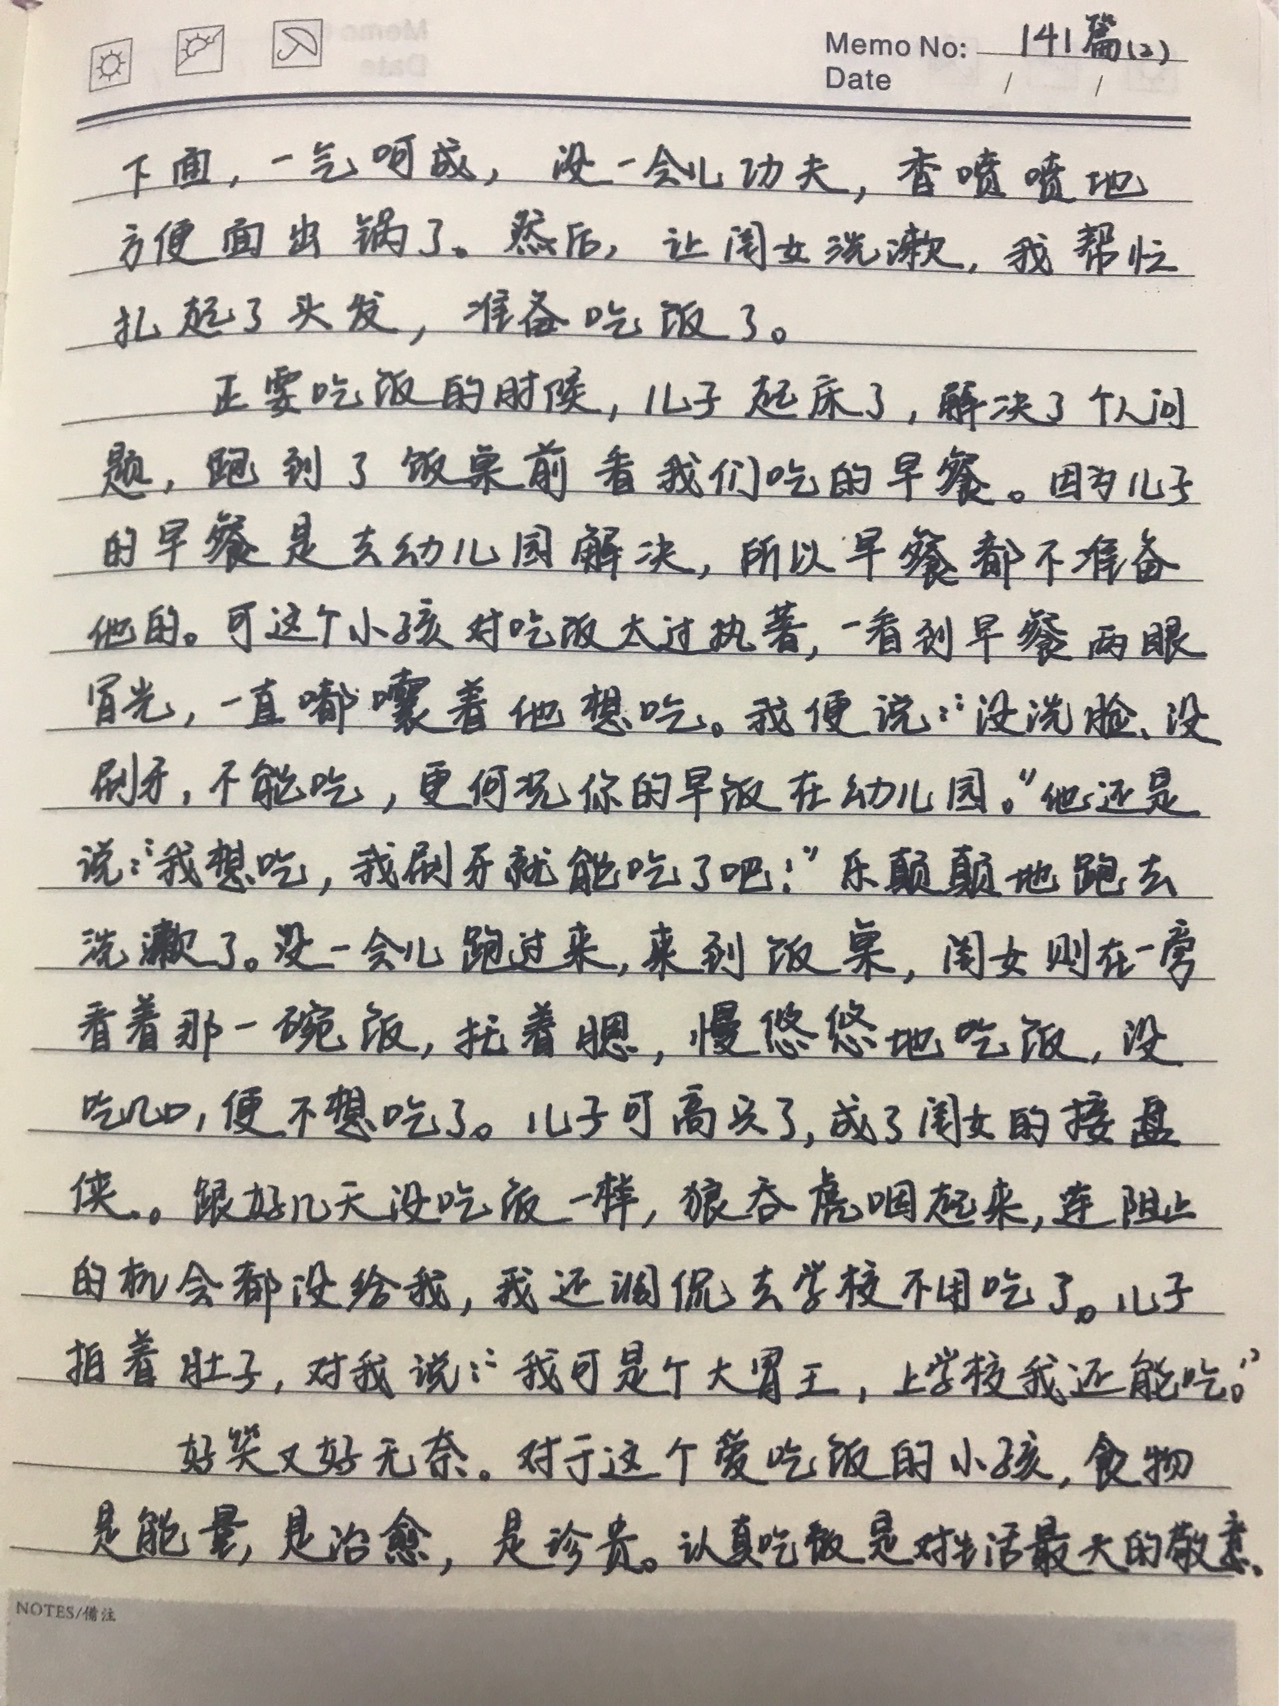 Memo No: 141篇(2)
Date / /
下面，一气呵成，没一会儿功夫，香喷喷地
方便面出锅了。然后，让闺女洗漱，我帮忙
扎起了头发，准备吃饭了。
正要吃饭的时候，儿子起床了，解决了个人问
题，跑到了饭桌前看我们吃的早餐。因为儿子
的早餐是去幼儿园解决，所以早餐都不准备
他的。可这个小孩对吃饭太过执著，一看到早餐两眼
冒光，一直嘟囔着他想吃。我便说：“没洗脸、没
刷牙，不能吃，更何况你的早饭在幼儿园。”他还是
说：“我想吃，我刷牙就能吃了吧！”乐颠颠地跑去
洗漱了。没一会儿跑过来，来到饭桌，闺女则在一旁
看着那一碗饭，托着腮，慢悠悠地吃饭，没
吃几口，便不想吃了。儿子可高兴了，成了闺女的接盘
侠。。跟好几天没吃饭一样，狼吞虎咽起来，连阻止
的机会都没给我，我还调侃去学校不用吃了。儿子
拍着肚子，对我说：“我可是个大胃王，上学校我还能吃。”
好笑又好无奈。对于这个爱吃饭的小孩，食物
是能量，是治愈，是珍贵。认真吃饭是对生活最大的敬意。
NOTES/備注